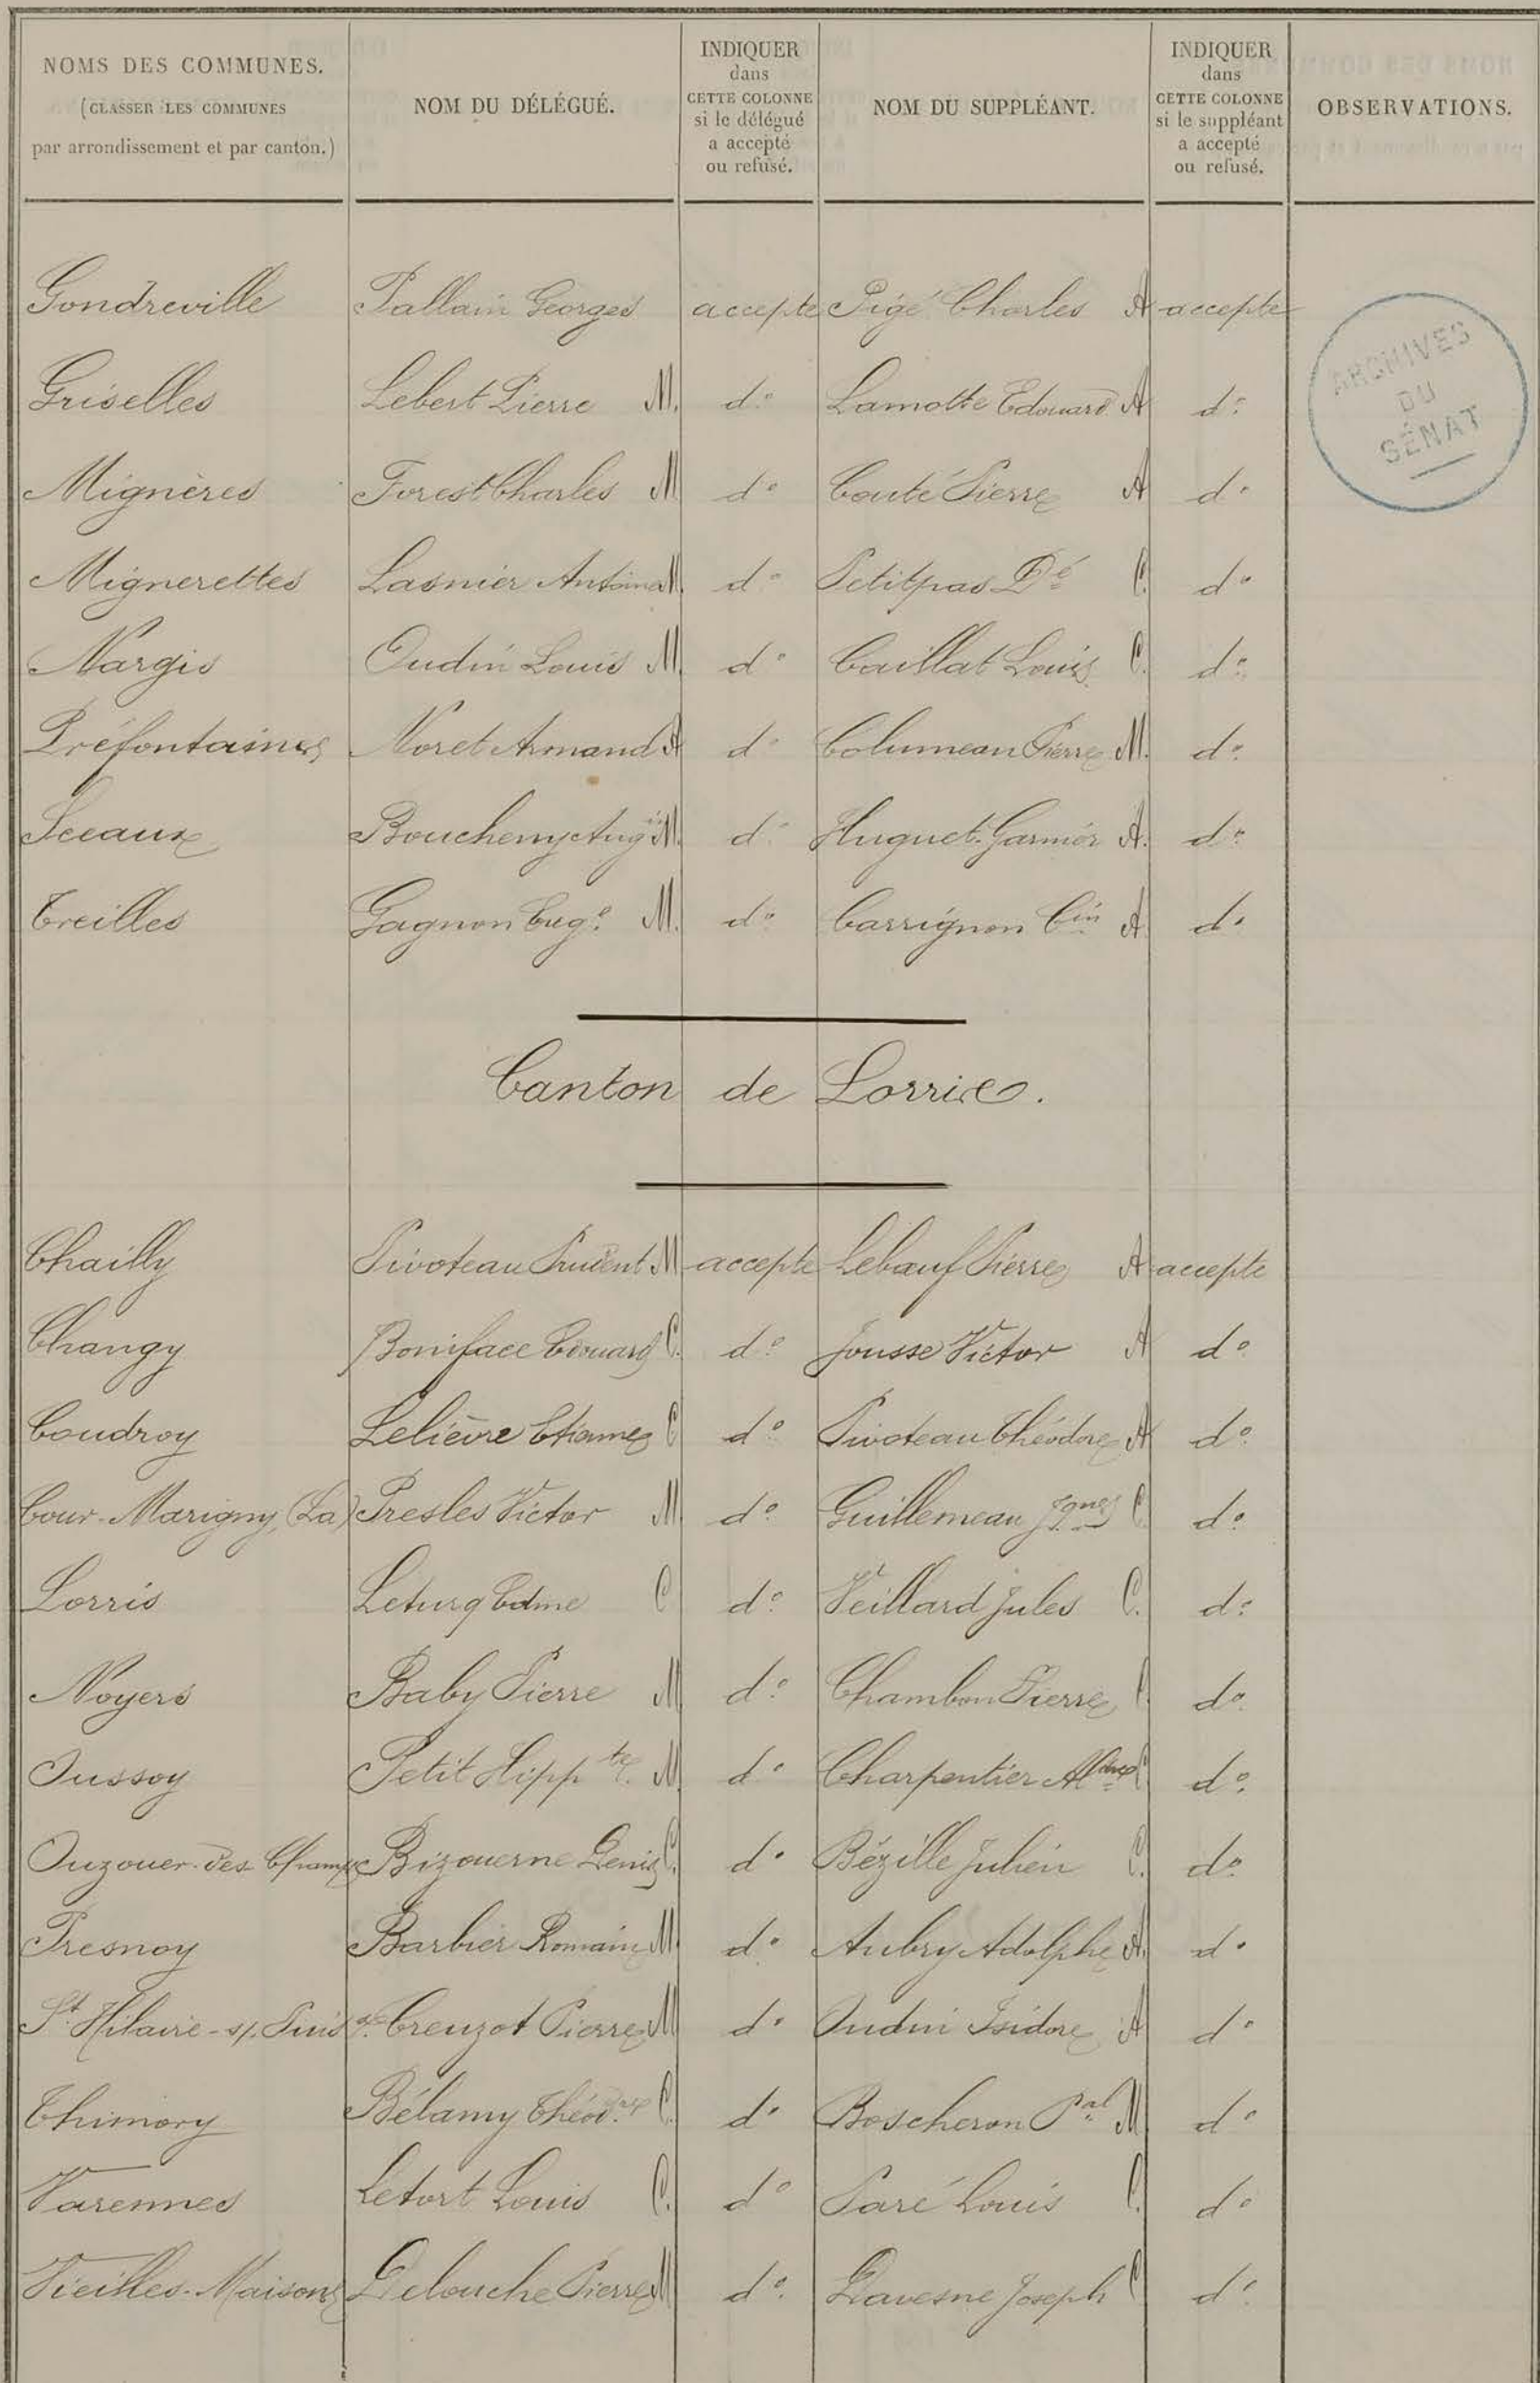 NOMS DES COMMUNES.
(CLASSER LES COMMUNES
par arrondissement et par canton.)
NOM DU DÉLÉGUÉ.
INDIQUER
dans
CETTE COLONNE
si le délégué
a accepté
ou refusé.
NOM DU SUPPLÉANT.
INDIQUER
dans
CETTE COLONNE
si le suppléant
a accepté
ou refusé.
OBSERVATIONS.
Gondreville Pallain Georges accepte Pigé Charles A accepte
Griselles Lebert Pierre M. do Lamotte Edouard A do
Mignères Forest Charles M do Couté Pierre A do
Mignerettes Lasnier Antoine M. do Petitpas Dé C. do
Nargis Oudin Louis M. do Caillat Louis C. do
Préfontaines Noret Armand A do Columeau Pierre M. do
Sceaux Boucheny Augin M. do Huguet-Garnier A. do
Treilles Gagnon Euge. M. do Carrignon Cin A do
ARCHIVES
DU
SÉNAT
Canton de Lorris.
Chailly Pivoteau Prudent M accepte Lebœuf Pierre A accepte
Changy Boniface Edouard C. do Jousse Victor A do
Coudroy Lelièvre Etienne C do Pivoteau Théodore A do
Cour-Marigny (La) Presles Victor M do Guillemeau Jques C do
Lorris Leturq Edme C do Veillard Jules C. do
Noyers Baby Pierre M do Chambon Pierre C. do
Oussoy Petit Hippte. M. do Charpentier Aldre C. do
Ouzouer-des-Champs Bizouerne Denis C. do Bézille Julien C. do
Presnoy Barbier Romain M. do Aubry Adolphe A. do
St Hilaire-s/-Puisx. Creuzot Pierre M do Oudin Isidore A do
Thimory Bélamy Théodre C. do Boscheron Pal M do
Varennes Letort Louis C. do Paré Louis C. do
Vieilles-Maisons Delouche Pierre M do Davesne Joseph C do